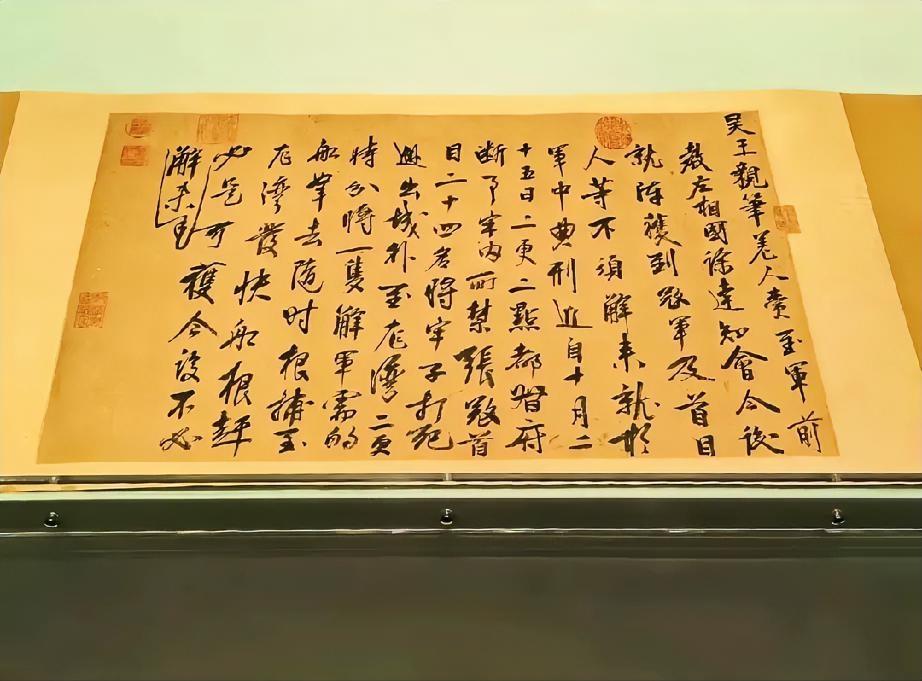 吴王親筆差人賫至軍前
教左相國徐達知會今後
就陣獲到寇軍及首目
人等不須解来就於
軍中典刑近自十月二
十五日二更二點都督府
斷了牢内所禁張寇首
目二十四名將牢子打死
出城外至龙灣二更
時分將一隻解軍需的
船去随时根捕至
龙灣發快船根趕
必是可獲今後不必
解来